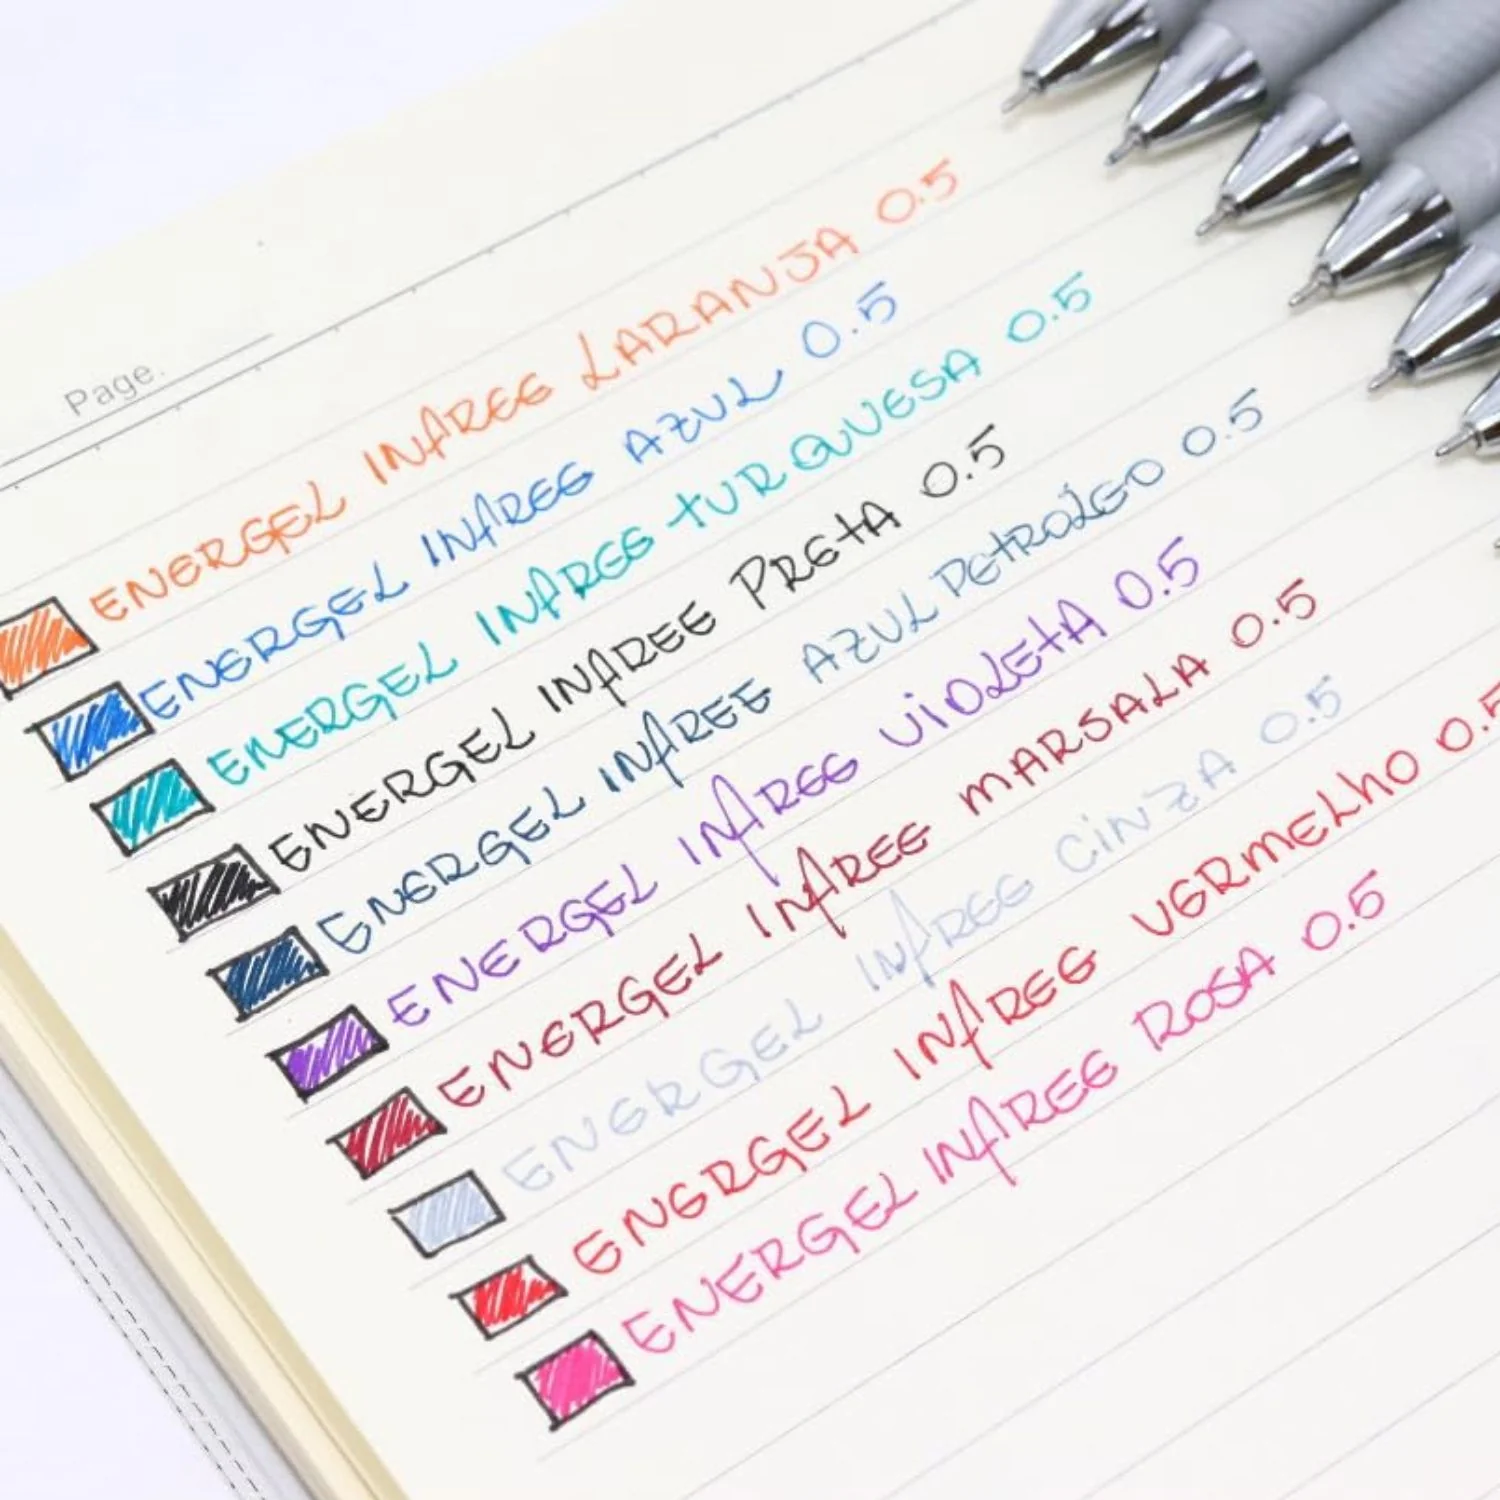 Page.
ENERGEL INFREE LARANJA 0.5
ENERGEL INFREE AZUL 0.5
ENERGEL INFREE TURQUESA 0.5
ENERGEL INFREE PRETA 0.5
ENERGEL INFREE AZUL PETROLEO 0.5
ENERGEL INFREE VIOLETA 0.5
ENERGEL INFREE MARSALA 0.5
ENERGEL INFREE CINZA 0.5
ENERGEL INFREE VERMELHO 0.5
ENERGEL INFREE ROSA 0.5